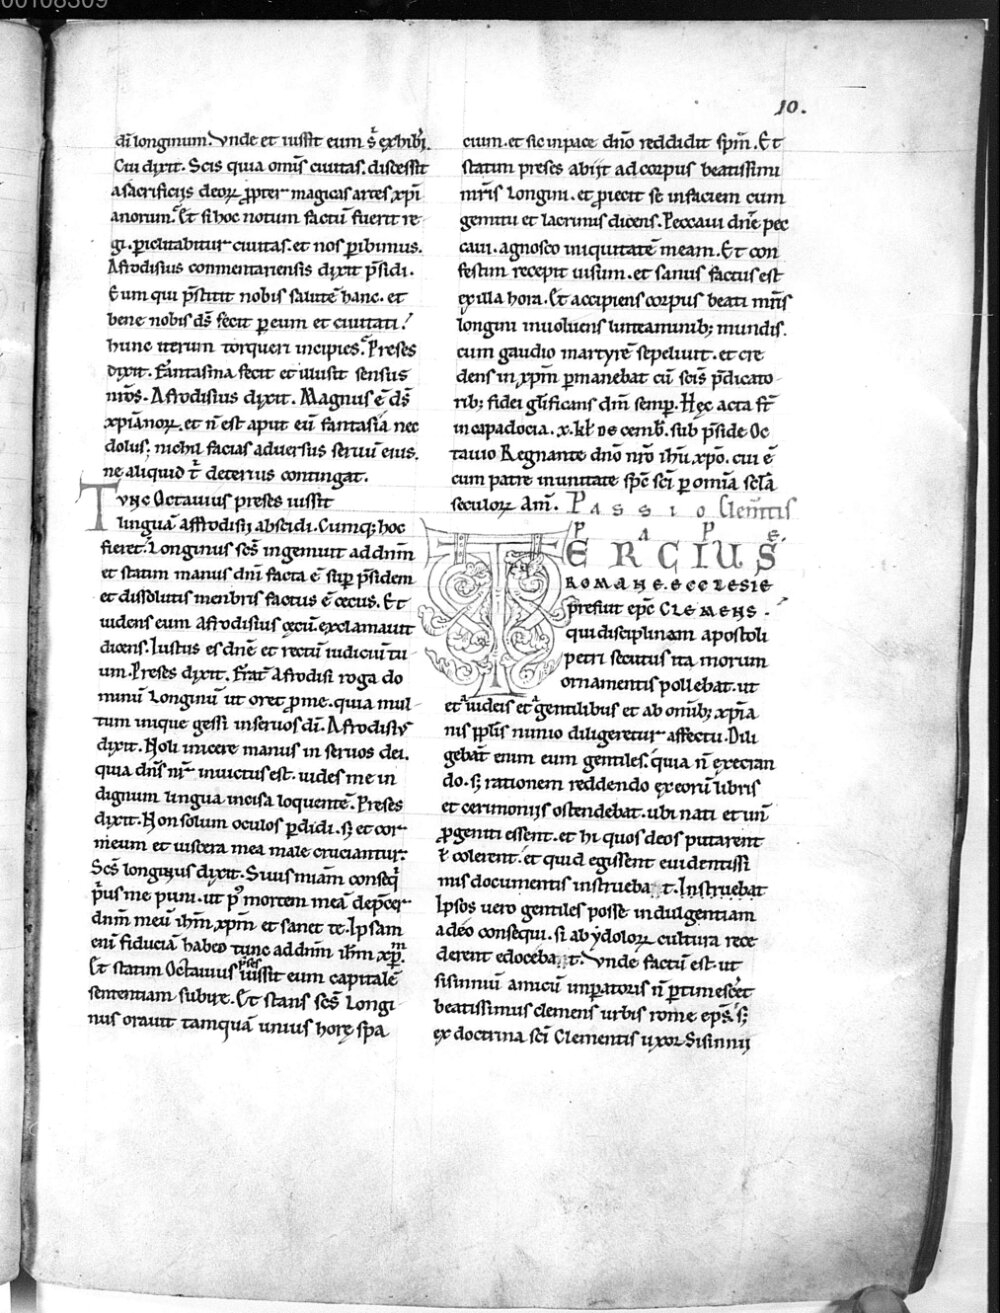 00108309
10.
di longinum. Vnde et iussit eum s̄ exhiberi.
Cui dixit. Scis quia omīs ciuitas. discessit
a sacrificijs deoꝝ ꝓpter magicas artes xp̄i
anorum. Et si hoc notum factū fuerit re
gi. ꝑiclitabitur ciuitas. et nos ꝑibimus.
Afrodisius commentariensis dixit p̄sidi.
Eum qui p̄stitit nobis salutē hanc. et
bene nobis ds̄ fecit ꝑ eum et ciuitati.
hunc iterum torqueri incipies. Preses
dixit. Fantasma fecit et illusit sensus
nr̄os. Afrodisius dixit. Magnus ē ds̄
xp̄ianoꝝ. et n̄ est aput eū fantasia nec
dolus. nichil facias aduersus seruū eius.
ne aliquid t̄ deterius contingat.
Tunc Octauius preses iussit
linguā affrodisij abscidi. Cumq; hoc
fieret. Longinus scs̄ ingemuit ad dn̄m
et statim manus dn̄i facta ē suꝑ p̄sidem
et dissolutis menbris factus ē cecus. Et
uidens eum afrodisius cecū. exclamauit
dicens. Iustus es dn̄e et rectū iudiciū tu
um. Preses dixit. Frat̄ Afrodisi roga do
minū Longinū ut oret ꝓ me. quia mul
tum inique gessi in seruos dī. Afrodisiꝰ
dixit. Noli inicere manus in seruos dei.
quia dn̄s nr̄ inuictus est. uides me in
dignum lingua incisa loquentē. Preses
dixit. Non solum oculos ꝑdidi. sꝫ et cor
meum et uiscera mea male cruciantur.
Scs̄ longinus dixit. Si uis
p̄us me puni. ut pꝰ mortem meā dep̄cer
dn̄m meū ih̄m xp̄m et sanet te. Ipsam
eni fiduciā habeo tunc ad dn̄m ih̄m xp̄m.
Et statim Octauius p̄ses iussit eum capitalē
sententiam subire. Et stans scs̄ Longi
nus orauit tamquā unius horę spa
cium. et sic in pace dn̄o reddidit sp̄m. Et
statim preses abijt ad corpus beatissimi
mr̄is Longini. et ꝓiecit se in faciem cum
gemitu et lacrimis dicens. Peccaui dn̄e pec
caui. agnosco iniquitatē meam. Et con
festim recepit uisum. et sanus factus est
ex illa hora. Et accipiens corpus beati mr̄is
longini inuoluens linteaminibꝫ mundis.
cum gaudio martyrē sepeliuit. et cre
dens in xp̄m ꝑmanebat cū scīs p̄dicato
ribꝫ fidei gl̄ificans dm̄ semꝑ. Hęc acta st̄
in capadocia. x. kl̄ decemb̄. sub p̄side Oc
tauio Regnante dn̄o nr̄o ih̄u xp̄o. cui ē
cum patre in unitate sp̄c sc̄i ꝑ omīa sc̄la
seculoꝝ Am̄. Passio Clem̄tis
Pape.
TERCIUS
ROMANE ECCLESIE
prefuit ep̄c CLEMENS.
qui disciplinam apostoli
petri secutus ita morum
ornamentis pollebat. ut
et a iudeis et a gentilibus et ab omībꝫ xp̄ia
nis pp̄lis nimio diligeretur affectu. Dili
gebat̄ enim eum gentiles. quia n̄ execran
do. sꝫ rationem reddendo ex eorū libris
et cerimonijs ostendebat. ubi nati et un̄
ꝓgeniti essent. et hi quos deos putarent
t̄ colerent. et quid egissent euidentissi
mis documentis instrueba t. Instruebat
Ipsos uero gentiles posse indulgentiam
a deo consequi. si ab ydoloꝝ cultura rece
derent edoceba t. Vnde factū est. ut
sisinniū amicū imꝑatoris n̄ ꝑtimesceret
beatissimus clemens urbis rome ep̄s. sꝫ
ex doctrina sc̄i Clementis uxor Sisinnij